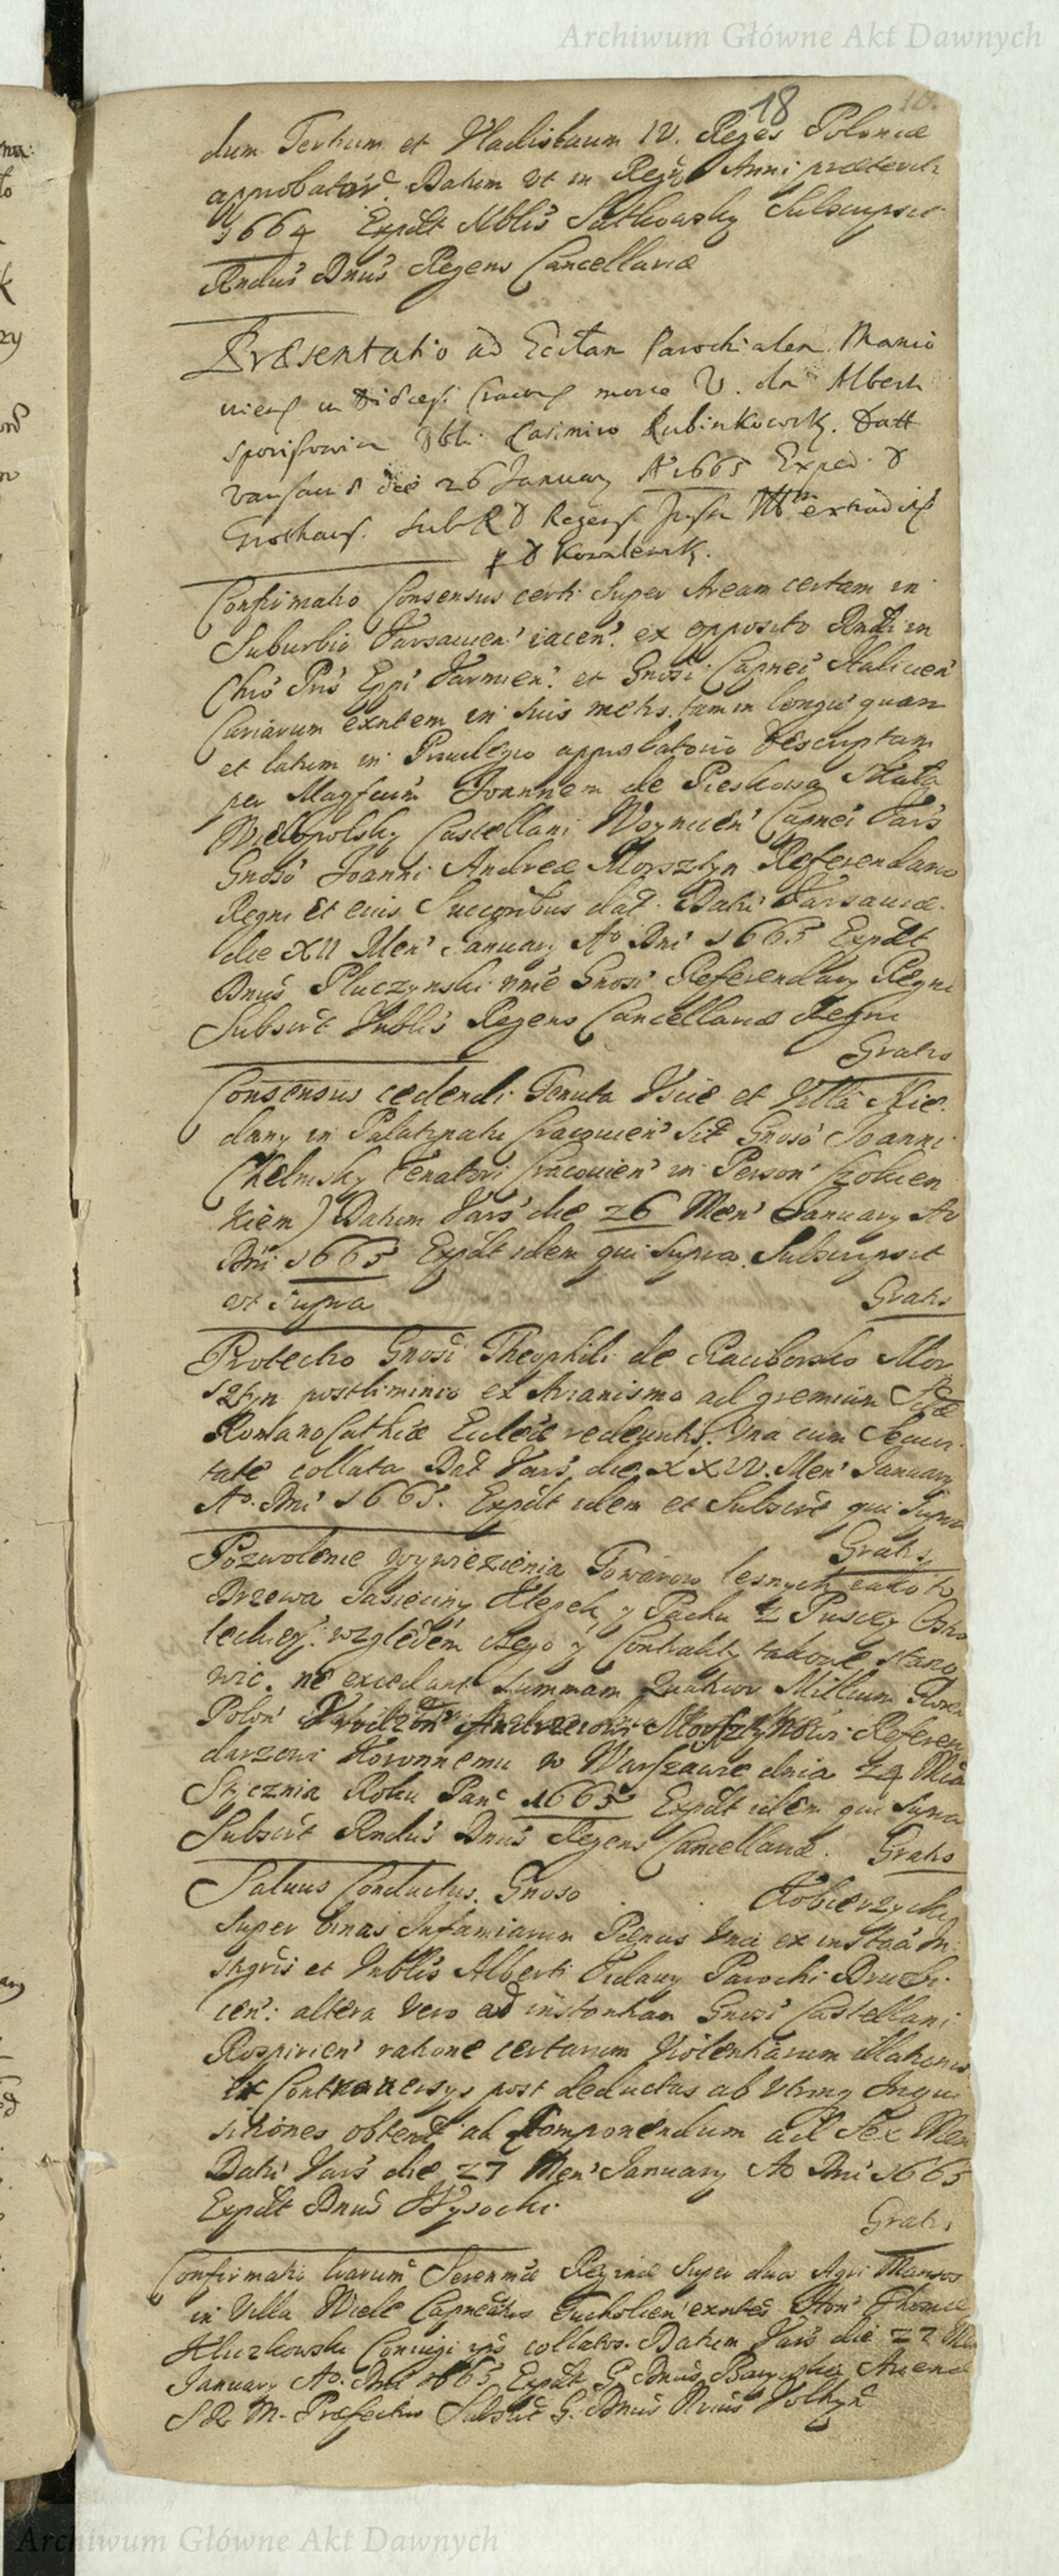 Archiwum Główne Akt Dawnych
18
dum Tertium et Vladislaum IV. Reges Poloniæ
approbator Datum ut in Regr Anni præteriti
1664 Expdt Nblis Sulkowsky Subscripsit
Rndus Dnus Regens Cancellariæ
Præsentatio ad Ecclam Parochialem
in Diecesi Cracov more V. Alberti
Casimiro Rubinkowsk. Datt
Varsaviæ die 26 January Ao 1665 Exped. D
Grothaus. Sub R D Regens. extradit
p D Kowalewsk.
Confirmatio Consensus certi Super Aream certam in
Suburbio Varsavien' iacen'. ex opposito Rndi in
Chro Pris Eppi Varmien'. et Gnosi Capnei Halicien
Curiarum exntem in suis metis tam in longu' quam
et latum in Priuilegio approbatorio descriptam
per Magfcum Joannem de Pieskowa Skała
Wielopolsky Castellani Woynicen' Capnei Vars
Gnoso Joanni Andreæ Morsztyn Referendario
Regni et eius Succoribus dat. Datu' Varsauiæ.
die XII Men' January Ao Dni 1665 Expdt
Dnus Pluczynski nne Gnosi Referendary Regni
Subscrit Vnblis Regens Cancellariæ Regni
Gratis
Consensus cedendi Tenuta Vscie et Villa Nie
dary in Palatinatu Cracouien' Sit Gnoso Joanni
Chelmsky Tenatori Cracouien' in Person'
kiem) Datum Vars' die 26 Men' January Ao
Dni 1665 Expdt idem qui Supra Subscripsit
ut Supra
Gratis
Protectio Gnosi Theophili de Raciborsko Mor
sztyn postliminio ex Arianismo ad gremium Sctæ
Romano Cathcæ Eccleiæ redeuntis. Vna cum Secur
tate collata Dat Vars' die XXIV. Men' January
Ao. Dni 1665. Expdt idem et Subscrit qui Supra
Gratis
Pozwolenie wywiezienia Towarow lesnych iako to
Drzewa Sasieciny Klepek y Pachu z Puscey
leckiey. względem czego y Contrakty takowe stano
wic. ne excedant Summam Quatuor Millium Floren
Polon' Andrzeiowi Morsztynowi Referen
darzowi Koronnemu w Warszawie dnia 24 Mca
Stycznia Roku Panc 1665 Expdt idem qui Supra
Subscrit Rndus Dnus Regens Cancellariæ. Gratis
Saluus Conductus. Gnoso Kobierzycki
Super binas Infamiarum Pœnas Vna ex instaa In
stigris et Vnblis Alberti Parochi
cen'. altera vero ad instantiam Gnosi Castellani
Rospirien' ratione certarum Violentiarum illationis
ex Controuersys post deductas ab vtrinq Inqui
sitiones obtent ad Componendum ad Sex Men
Datu' Vars' die 27 Men' January Ao Dni 1665
Expdt Dnus Wysocki
Gratis
Confirmatio Irarum Serenmæ Reginæ Super duo Agri Mansos
in Villa Wiele Capneatus Tucholien' exntes Hon' Thomæ
Kluczkowski Coniugi ips collatos. Datum Vars die 27 Men
January Ao. Dni 1665 Expdt G. Dnus
S R M. Præfectus Subscrit G. Dnus
Archiwum Główne Akt Dawnych